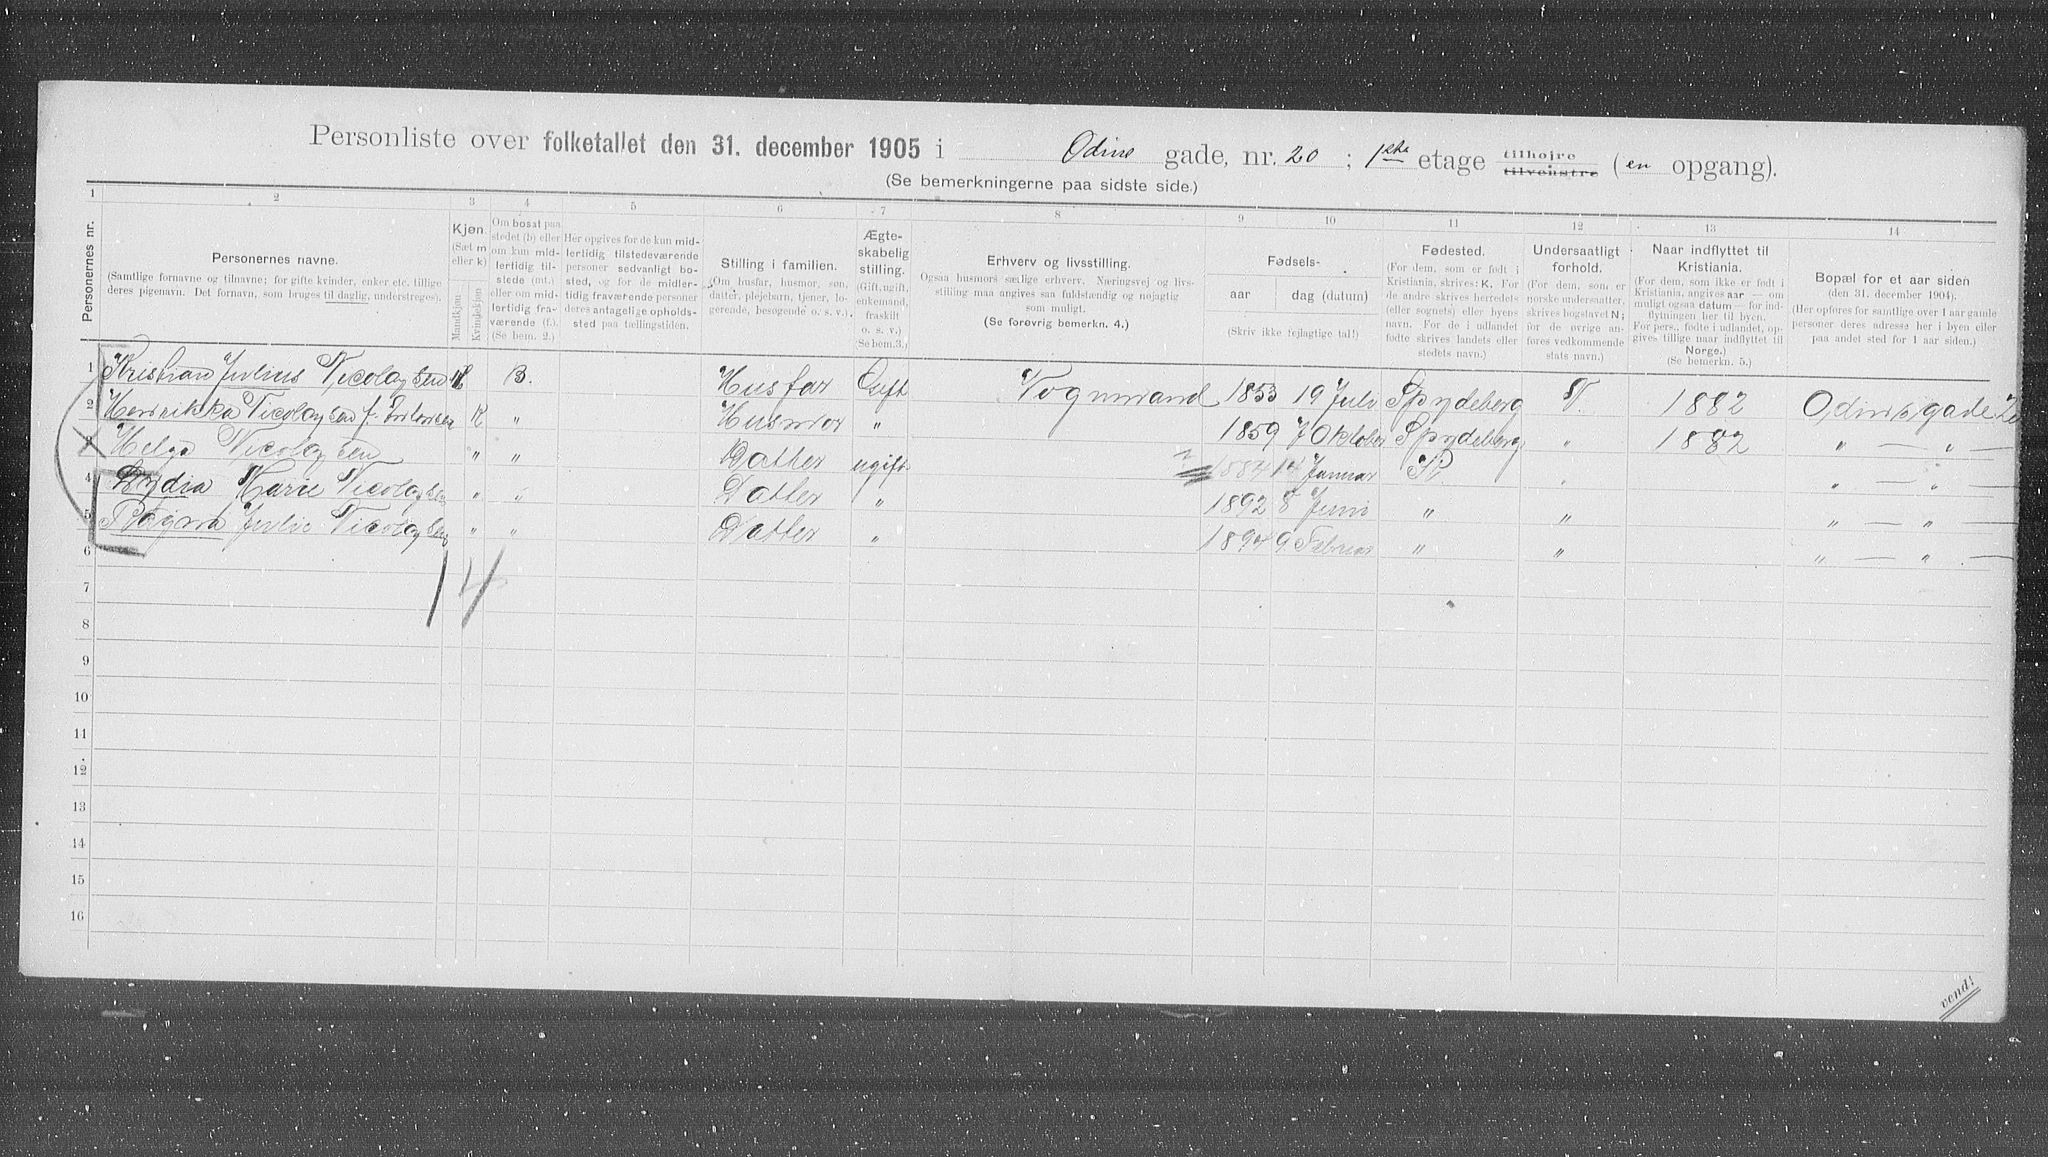 Personliste over folketallet den 31. december 1905 i Odins gade, nr. 20; 1ste etage tilhøjre tilvenstre (en opgang).
(Se bemerkningerne paa sidste side.)
1 2 3 4 5 6 7 8 9 10 11 12 13 14
Personernes nr.
Personernes navne.
(Samtlige fornavne og tilnavne; for gifte kvinder, enker etc. tillige
deres pigenavn. Det fornavn, som bruges til daglig, understreges).
Kjøn.
(Sæt m
eller k)
Mandkjøn
Kvindekjøn
Om bosat paa
stedet (b) eller
om kun mid-
lertidig til-
stede (mt.)
eller om mid-
lertidig fra-
værende (f.).
(Se bem. 2.)
Her opgives for de kun mid-
lertidig tilstedeværende
personer sedvanligt bo-
sted, og for de midler-
tidig fraværende personer
deres antagelige opholds-
sted paa tællingstiden.
Stilling i familien.
(Om husfar, husmor, søn,
datter, plejebarn, tjener, lo-
gerende, besøgende o. s. v.)
Ægte-
skabelig
stilling.
(Gift, ugift,
enkemand,
fraskilt
o. s. v.)
(Se bem. 3.)
Erhverv og livsstilling.
Ogsaa husmors særlige erhverv. Næringsvej og livs-
stilling maa angives saa fuldstændig og nøjagtig
som muligt.
(Se forøvrig bemerkn. 4.)
Fødsels-
aar
dag (datum)
(Skriv ikke fejlagtige tal!)
Fødested.
(For dem, som er født i
Kristiania, skrives: K. For
de andre skrives herredets
(eller sognets) eller byens
navn. For de i udlandet
fødte skrives landets eller
stedets navn.)
Undersaatligt
forhold.
(For dem, som er
norske undersaatter,
skrives bogstavet N;
for de øvrige an-
føres vedkommende
stats navn.)
Naar indflyttet til
Kristiania.
(For dem, som ikke er født i
Kristiania, angives aar — om
muligt ogsaa datum — for ind-
flytningen her til byen.
For pers., fødte i udlandet, op-
gives tillige naar indflyttet til
Norge.)
(Se bemerkn. 5.)
Bopæl for et aar siden
(den 31. december 1904).
(Her opføres for samtlige over 1 aar gamle
personer deres adresse her i byen eller
paa andet sted for 1 aar siden.)
1 Kristian Julius Nicolaysen M B. Husfar Gift Vognmand 1853 19 Juli Spydeberg N. 1882 Odinsgade 20
2 Henrikka Nicolaysen f. K " Husmor " 1859 7 Oktober Spydeberg " 1882 " — " —
3 Helga Nicolaysen " " Datter ugift 1884 14 Januar K. " " — " —
4 Lydia Marie Nicolaysen " " Datter " 1892 8 Juni " " " — " —
5 Ragna Julie Nicolaysen " " Datter " 1894 9 Februar " " " — " —
6
14
7
8
9
10
11
12
13
14
15
16
vend!